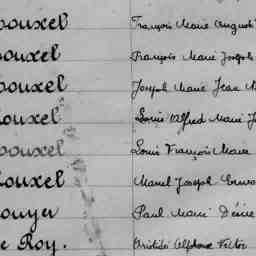 ouxel François Marie August
ouxel François Marie Joseph
ouxel Joseph Marie Jean M
ouxel Louis Alfred Marie J
ouxel Louis François Marie
ouxel Marcel Joseph Ernes
ouyer Paul Marie Désiré
e Roy. Aristide Alphonse Victor